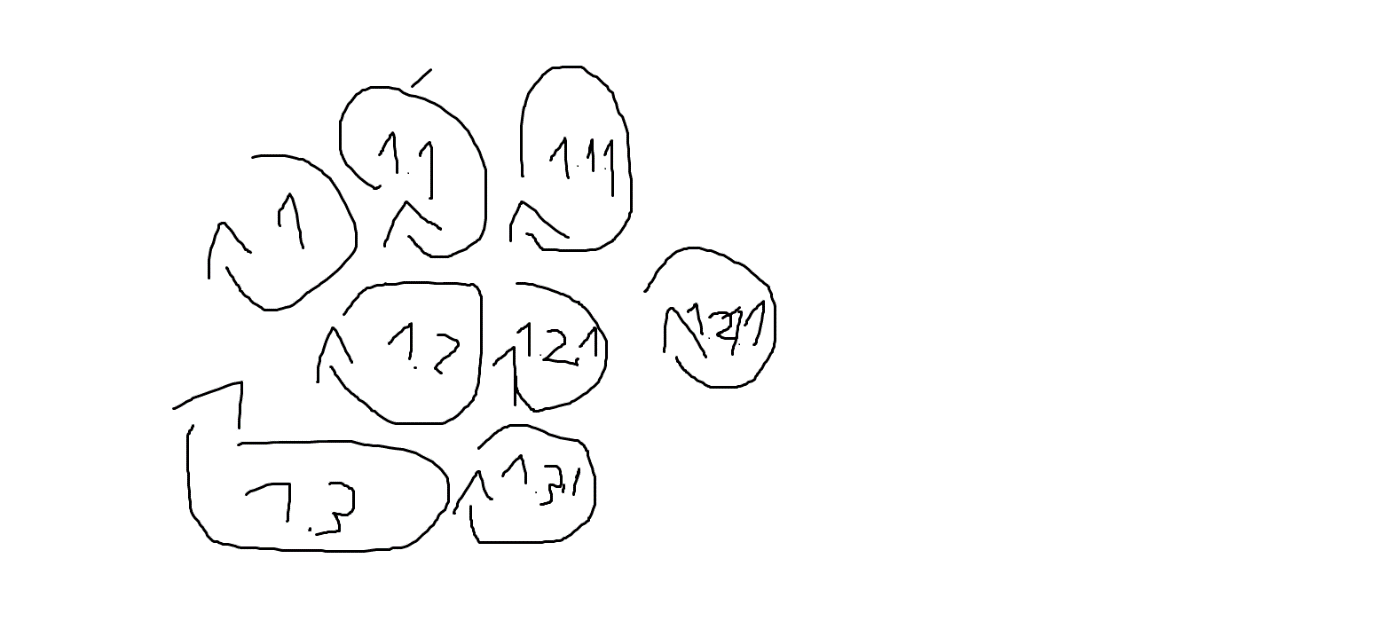 1
1.1
1.11
1.2
1.2.1
1.3
1.31